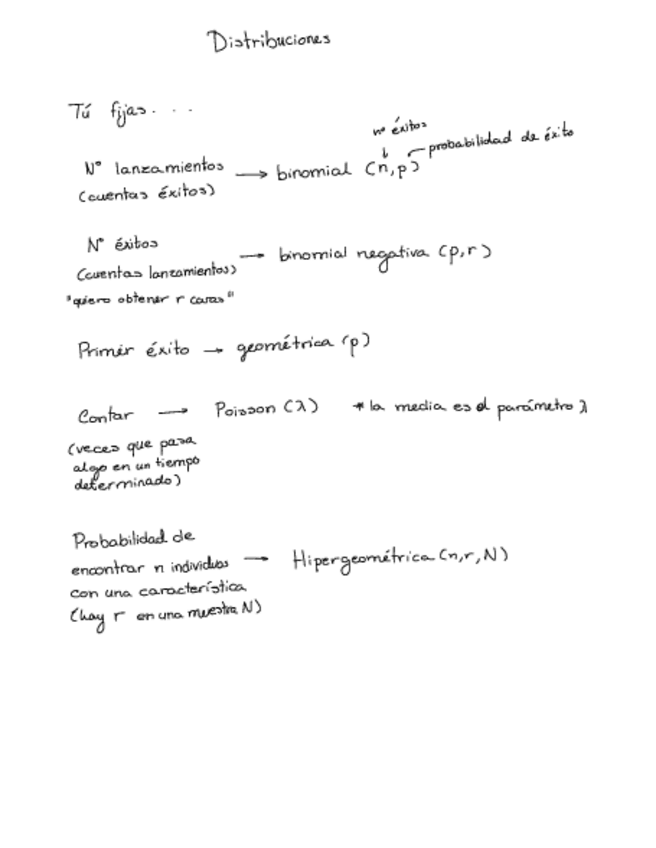 Distribuciones
Tú fijas. . . .
nº éxitos
probabilidad de éxito
Nº lanzamientos → binomial (n,p)
(cuentas éxitos)
Nº éxitos
(cuentas lanzamientos) → binomial negativa (p,r)
"quiero obtener r caras"
Primer éxito → geométrica (p)
Contar → Poisson (λ) * la media es el parámetro λ
(veces que pasa
algo en un tiempo
determinado)
Probabilidad de
encontrar n individuos → Hipergeométrica (n,r,N)
con una característica
(hay r en una muestra N)